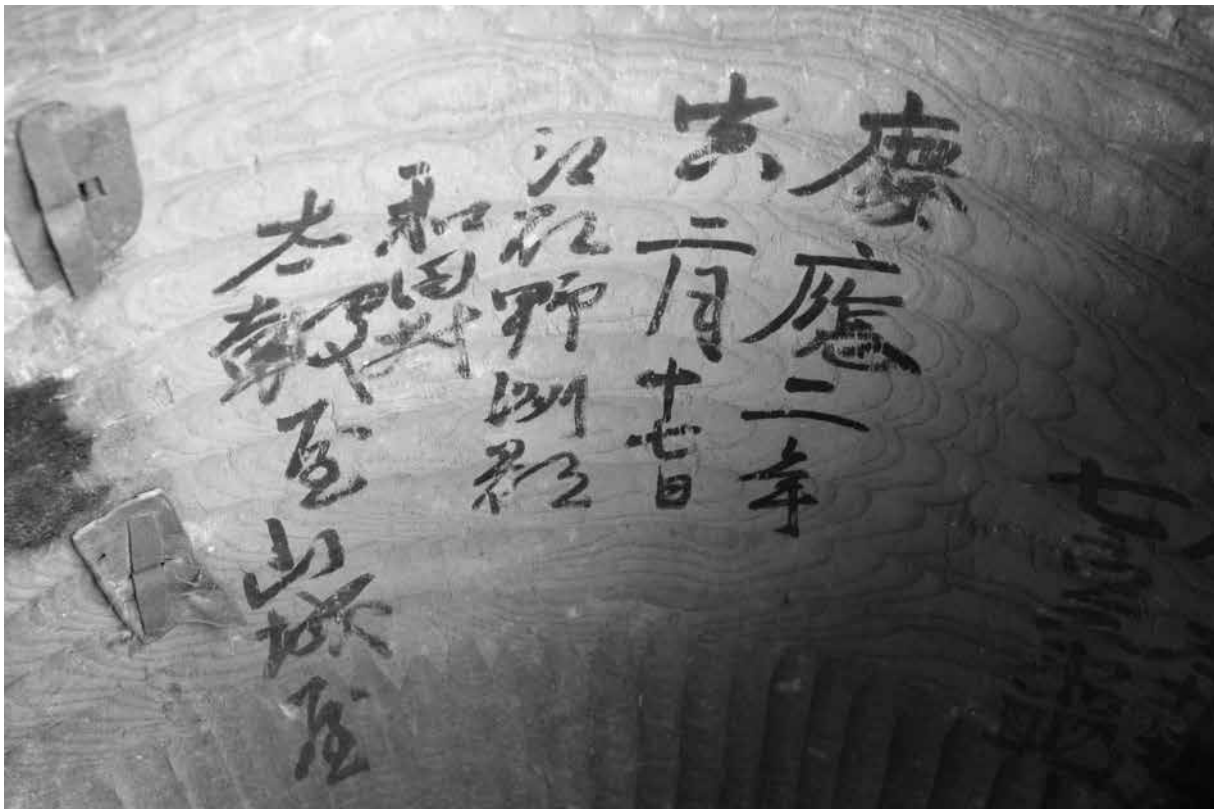 慶應二年
寅二月十七日
江州野洲郡
和田村
太皷屋山城屋